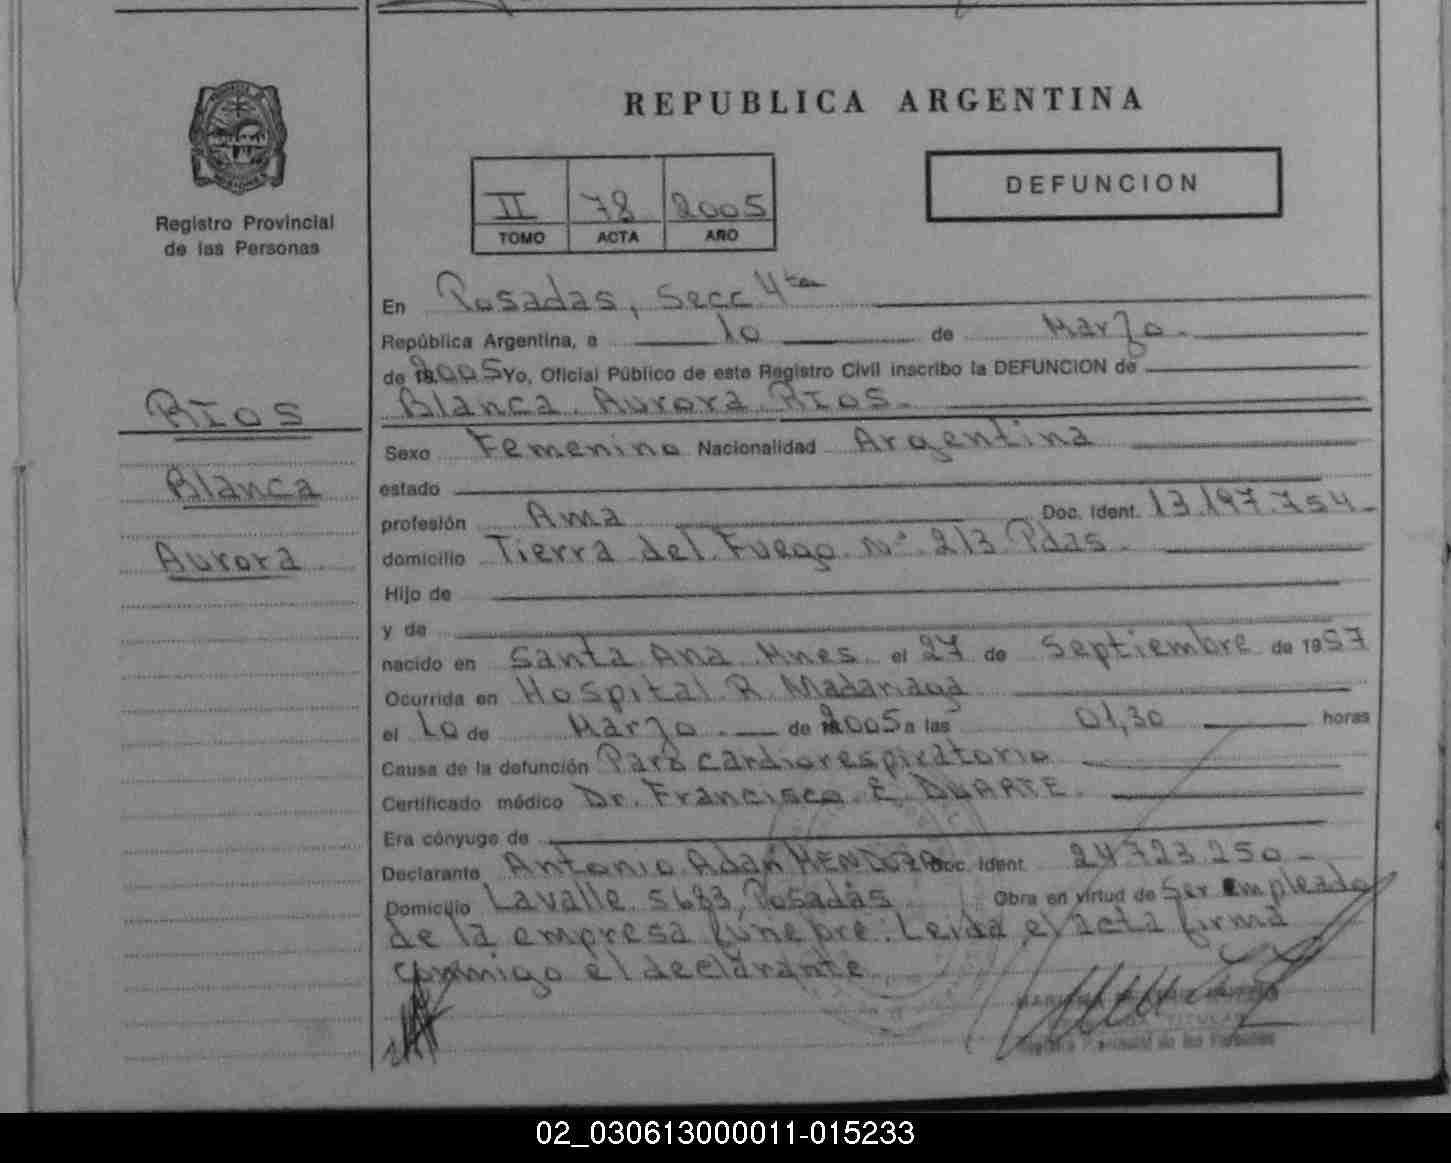 REPUBLICA ARGENTINA
DEFUNCION
II 78 2005
TOMO ACTA AÑO
Registro Provincial
de las Personas
RIOS
Blanca
Aurora
En Posadas, Secc 4ta
República Argentina, a 10 de Marzo
de 2005 Yo, Oficial Público de este Registro Civil inscribo la DEFUNCION de
Blanca Aurora RIOS
Sexo Femenino Nacionalidad Argentina
estado
profesión Ama Doc. Ident. 13.197.754
domicilio Tierra del Fuego Nº 213 Pdas
Hijo de
y de
nacido en Santa Ana Mnes el 27 de Septiembre de 1957
Ocurrida en Hospital R. Madariaga
el 10 de Marzo de 2005 a las 01,30 horas
Causa de la defunción Paro cardiorespiratorio
Certificado médico Dr. Francisco E. DUARTE
Era cónyuge de
Declarante Antonio Adan MENDOZA Doc. Ident. 24.723.250
Domicilio Lavalle 5683, Posadas Obra en virtud de Ser empleado
de la empresa fúnebre. Leida el acta firma
conmigo el declarante
TITULAR
Registro Provincial de las Personas
02_030613000011-015233